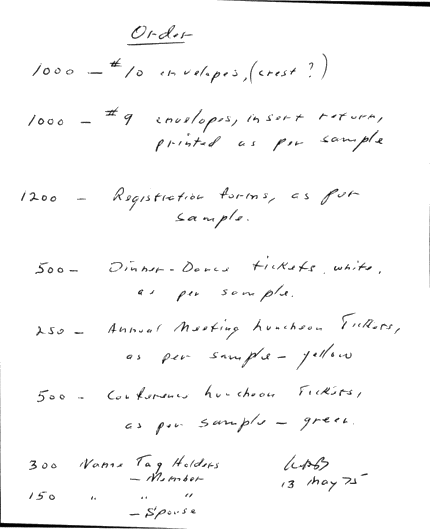 Order
1000 - #10 envelopes, (crest ?)
1000 - #9 envelopes, insert return,
printed as per sample
1200 - Registration forms, as per
sample.
500 - Dinner-Dance tickets, white,
as per sample.
250 - Annual Meeting Luncheon Tickets,
as per sample - yellow
500 - Conference Luncheon Tickets,
as per sample - green.
300 Name Tag Holders
- Member
13 May 75
150 " " "
- Spouse